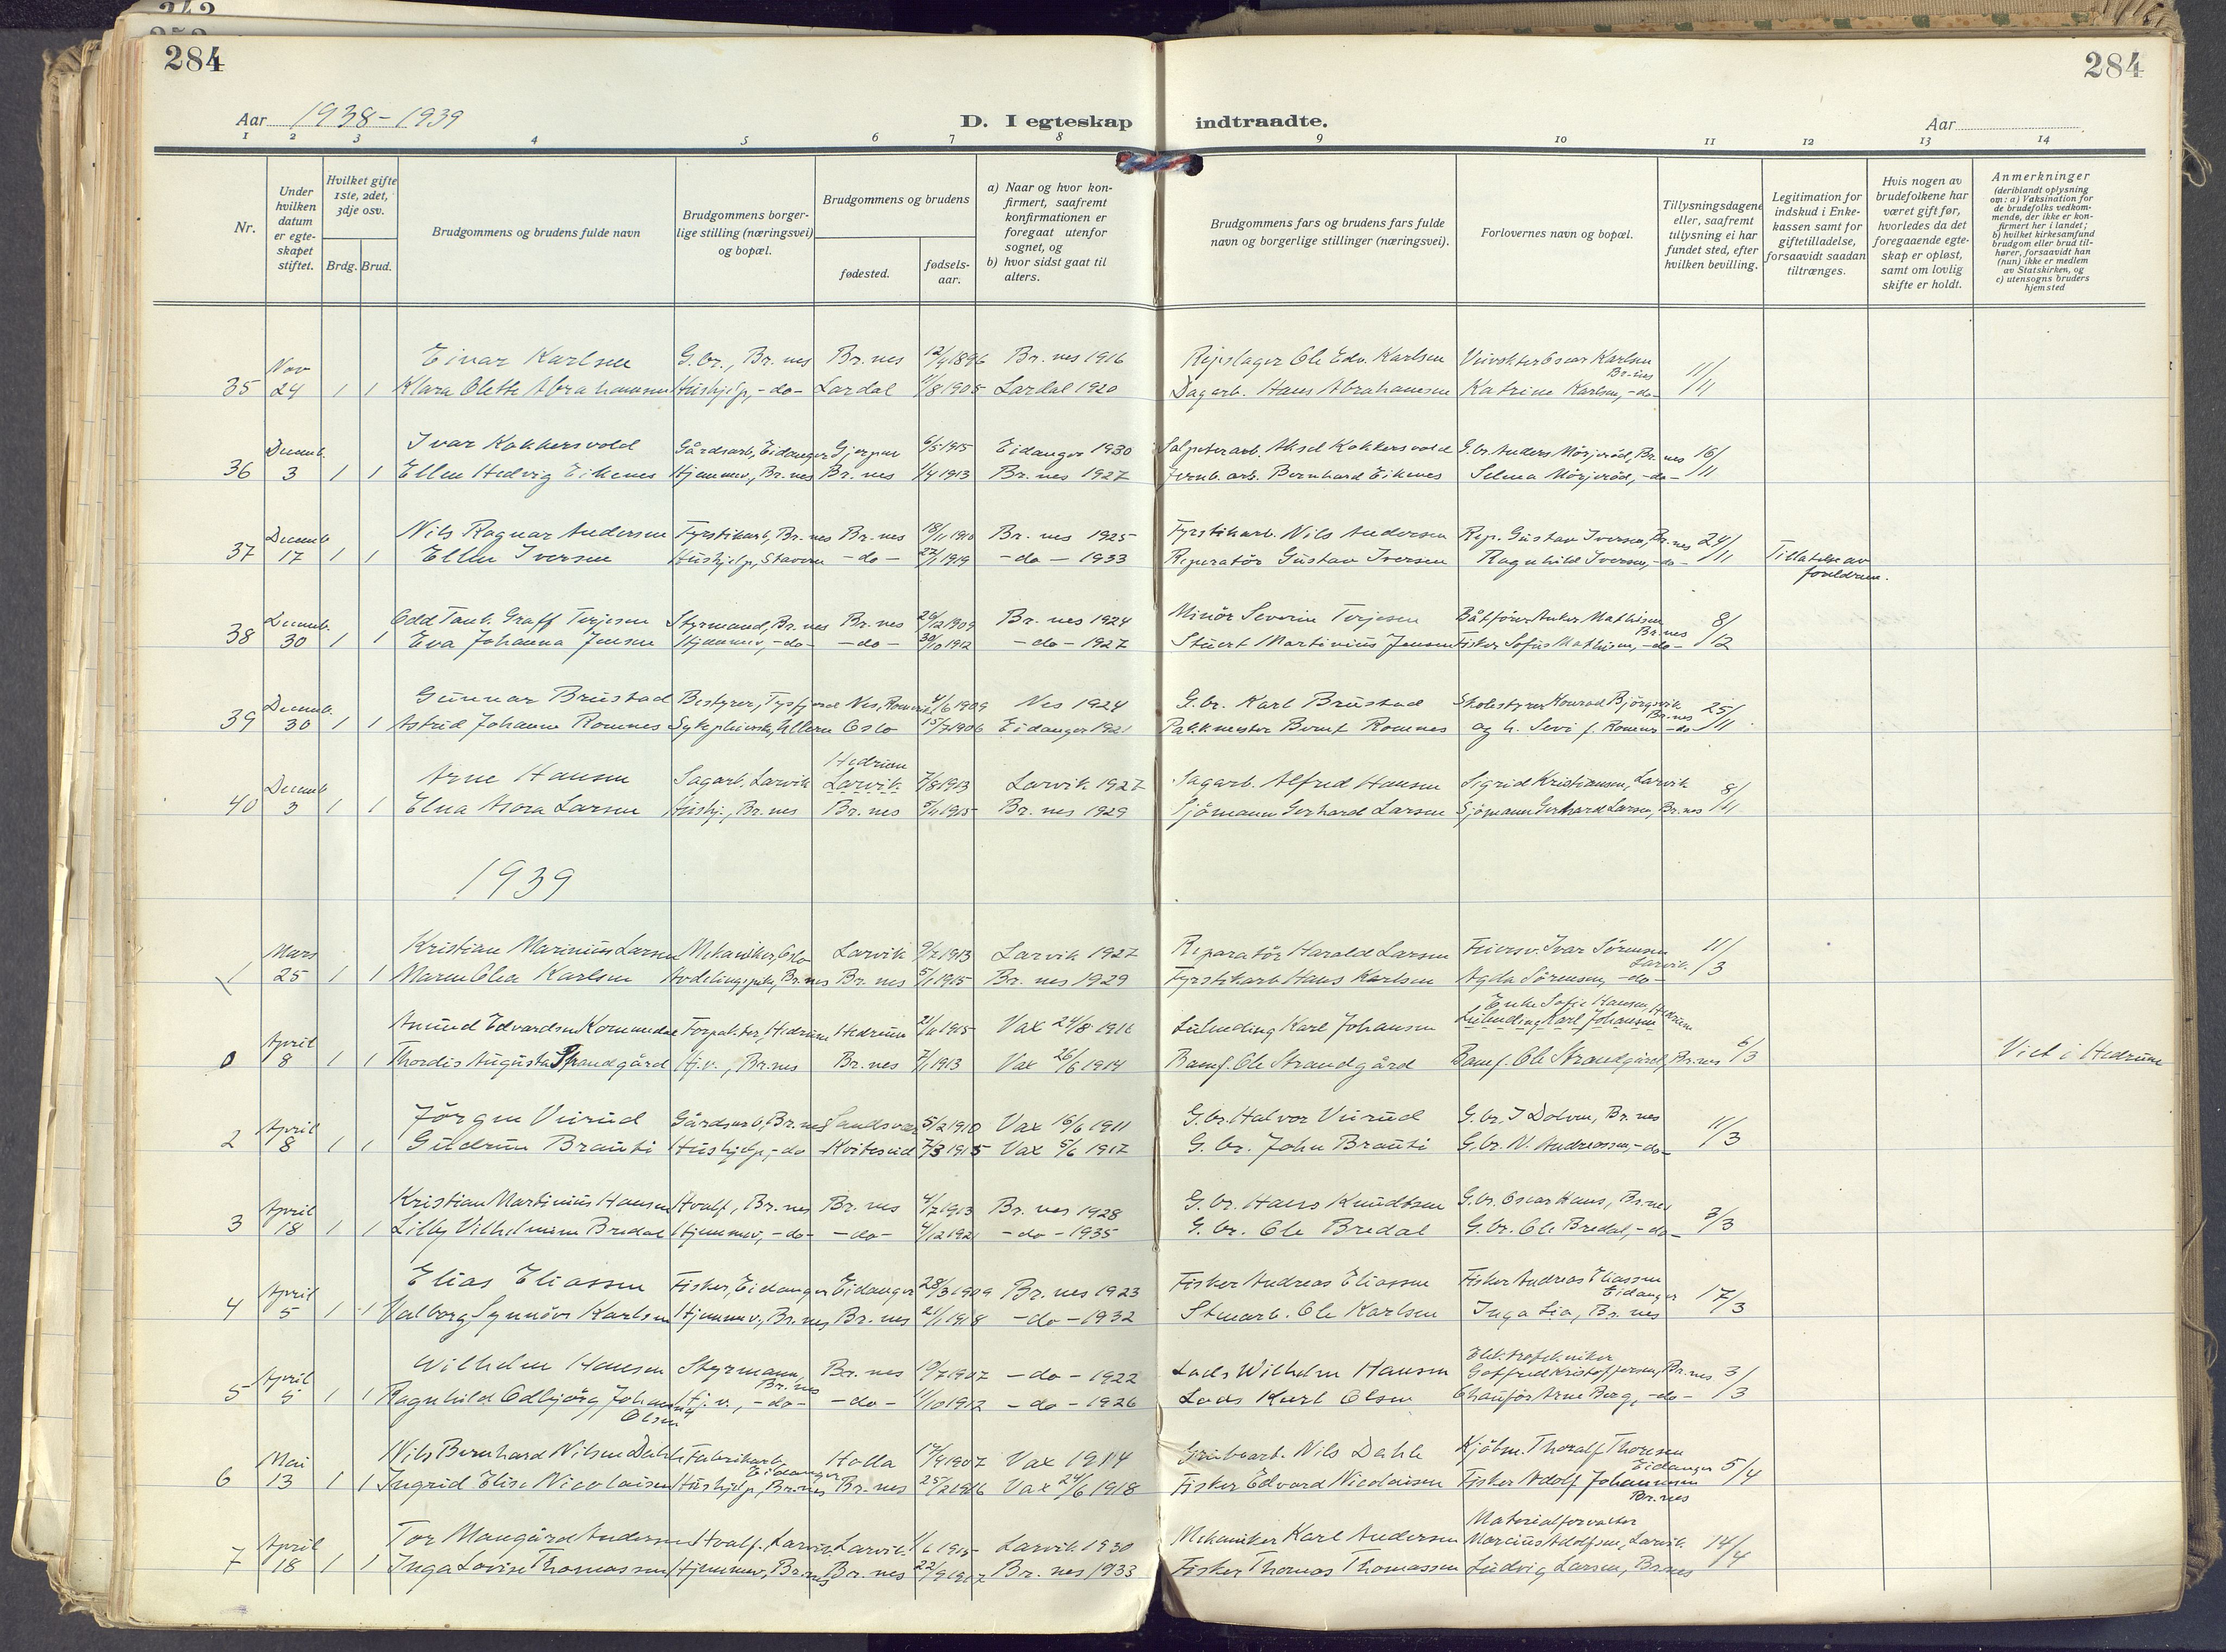 284
284
Aar 1938-1939
D. I egteskap indtraadte.
Aar
1 2 3 4 5 6 7 8 9 10 11 12 13 14
Nr.
Under hvilken datum er egteskapet stiftet.
Hvilket gifte 1ste, 2det, 3dje osv.
Brdg. Brud.
Brudgommens og brudens fulde navn
Brudgommens borgerlige stilling (næringsvei) og bopæl.
Brudgommens og brudens
fødested.
fødselsaar.
a) Naar og hvor konfirmert, saafremt konfirmationen er foregaat utenfor sognet, og
b) hvor sidst gaat til alters.
Brudgommens fars og brudens fars fulde navn og borgerlige stillinger (næringsvei).
Forlovernes navn og bopæl.
Tillysningsdagene eller, saafremt tillysning ei har fundet sted, efter hvilken bevilling.
Legitimation for indskud i Enkekassen samt for giftetilladelse, forsaavidt saadan tiltrænges.
Hvis nogen av brudefolkene har været gift før, hvorledes da det foregaaende egteskap er opløst, samt om lovlig skifte er holdt.
Anmerkninger (deriblandt oplysning om: a) Vaksination for de brudefolks vedkommende, der ikke er konfirmert her i landet; b) hvilket kirkesamfund brudgom eller brud tilhører, forsaavidt han (hun) ikke er medlem av Statskirken, og c) utensogns bruders hjemsted
Nov Einar Karlsen G.br., Br.nes Br.nes 12/9 1896 Br.nes 1916 Repslager Ole Edv. Karlsen Oscar Karlsen Br.nes 11/
35 24 1 1 Klara Olette Abrahamsen Hushjelp, -do- Lardal /8 1905 Lardal 1920 Dagarb. Hans Abrahamsen Katrine Karlsen, -do- 11
Decemb. Ivar Kokkersvold Gårdsarb, Eidanger Gjerpen 6/5 1915 Eidanger 1930 Salpeterarb. Aksel Kokkersvold G.br. Anders Mörjeröd, Br.nes 16/
36 3 1 1 Ellen Hedvig Eikenes Hjemmev., Br.nes Br.nes 1/4 1913 Br.nes 1927 Jernb.arb. Bernhard Eikenes Selma Mörjeröd, -do- 11
Decemb. Nils Ragnar Andersen Fyrstikarb, Br.nes Br.nes 18/11 1910 Br.nes 1925 Fyrstikarb. Nils Andersen Rep. Gustav Iversen, Br.nes 24/
37 17 1 1 Ellen Iversen Hushjelp, Stavern -do- 27/1 1919 -do- 1933 Reperatör Gustav Iversen Ragnhild Iversen, -do- 11 Tillatelse av foreldrene.
Decemb. Odd Tank Graff Terjesen Styrmand, Br.nes Br.nes 26/12 1909 Br.nes 1924 Minör Severin Terjesen Båtförer Anker Mathisen Br.nes 8/
38 30 1 1 Eva Johanna Jensen Hjemmev, -do- -do- 30/10 1912 -do- 1927 Stuert Martinius Jensen Fisker Sofus Mathisen, -do- 12
Decemb. Gunnar Brustad Bestyrer, Tysfjord Nes, Romerike 4/6 1909 Nes 1924 G.br. Karl Brustad Skolestyrer Konrad Björgvik Br.nes 25/
39 30 1 1 Astrid Johanne Romnes Sykepleierske, Ullern Oslo 15/7 1906 Eidanger 1921 Pakkmester Bernt Romnes og h. Sevi f. Romnes -do- 11
Hedrum
Decemb Arne Hansen Sagarb. Larvik Larvik 7/8 1913 Larvik 1927 Sagarb. Alfred Hansen Sigrid Kristiansen, Larvik 8/
40 3 1 1 Elna Mora Larsen Hushj., Br.nes Br.nes 5/11 1915 Br.nes 1929 Sjömann Gerhard Larsen Sjömann Gerhard Larsen, Br.nes 11
1939
Mars Kristian Marinius Larsen Mekaniker, Oslo Larvik 9/7 1913 Larvik 1927 Reparatör Harald Larsen Feiersv. Ivar Sörensen Larvik. 11/
1 25 1 1 Maren Olea Karlsen Avdelingspike, Br.nes Br.nes 5/1 1915 Br.nes 1929 Fyrstikarb Hans Karlsen Agda Sörensen, -do- 3
Enke Sofie Hansen, Hedrum
April Amund Edvardsen Kommedal Forpakter, Hedrum Hedrum 21/11 1915 Vax 24/8 1916 Karl Johansen Karl Johansen
0 8 1 1 Thordis Augusta Strandgård Hj.v., Br.nes Br.nes 7/1 1913 Vax 26/6 1914 Ole Strandgård Ole Strandgård, Br.nes 6/3 Viet i Hedrum
April Jörgen Vinrud Gårdsarb, Br.nes Sandsvær 5/2 1910 Vax 16/6 1911 G.br. Halvor Vinrud G.br. J Dolven, Br.nes 11/
2 8 1 1 Gudrun Brauti Hushjelp, -do Kviteseid 7/3 1915 Vax 5/6 1917 G.br. John Brauti G.br. N. Andreassen, -do- 3
April Kristian Martinius Hansen Hvalf, Br.nes Br.nes 4/7 1913 Br.nes 1928 G.br. Hans Knudtsen G.br. Oscar Hans, Br.nes 3/
3 18 1 1 Lilly Vilhelmine Bredal Hjemmev, -do- -do- 4/12 1921 -do- 1935 G.br. Ole Bredal G.br. Ole Bredal, -do- 3
April Elias Eliassen Fisker, Eidanger Eidanger 28/3 1909 Br.nes 1923 Fisker Andreas Eliassen Fisker Andreas Eliassen Eidanger 17/
4 5 1 1 Valborg Synnöve Karlsen Hjemmev., Br.nes Br.nes 21/11 1918 -do- 1932 Stenarb. Ole Karlsen Inga Lia, Br.nes 3
Elektrotekniker
April Wilhelm Hansen Styrmann, Br.nes Br.nes 19/7 1907 -do- 1922 Lods Wilhelm Hansen Gotfred Kristoffersen, Br.nes 3/
5 5 1 1 Ragnhild Odbjörg Johanna Olsen Hj.v., -do- -do- 11/10 1912 -do- 1926 Lods Karl Olsen Chauför Arne Berg, -do- 3
Mai Nils Bernhard Nilsen Dahle Fabrikarb. Eidanger Holla 17/9 1907 Vax 1914 Grubearb. Nils Dahle Kjöbm. Thoralf Thoresen Eidanger 5/4
6 13 1 1 Ingrid Elise Nicolaisen Hushjelp, Br.nes Br.nes 25/2 1916 Vax 24/6 1918 Fisker Edvard Nicolaisen Fisker Adolf Johannesen Br.nes
Materialforvalter
April Tor Maugård Andersen Hvalf. Larvik. Larvik. 1/6 1915 Larvik 1930 Mekaniker Karl Andersen Marcius Adolfsen, Larvik 14/
7 18 1 1 Inga Lovise Thomassen Hjemmev, Br.nes Br.nes 22/9 1917 Br.nes 1933 Fisker Thomas Thomassen Ludvig Larsen, Br.nes 4